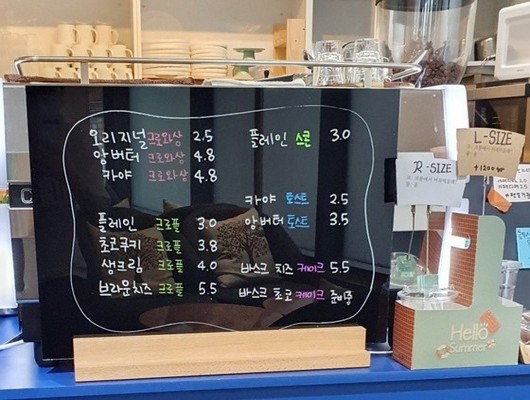 오리지널 크로와상 2.5
앙버터 크로와상 4.8
카야 크로와상 4.8
플레인 크로플 3.0
초코쿠키 크로플 3.8
생크림 크로플 4.0
브라운치즈 크로플 5.5
플레인 스콘 3.0
카야 토스트 2.5
앙버터 토스트 3.5
바스크 치즈 케이크 5.5
바스크 초코 케이크 준비중
R-SIZE
L-SIZE
+1200
Hello
Summer